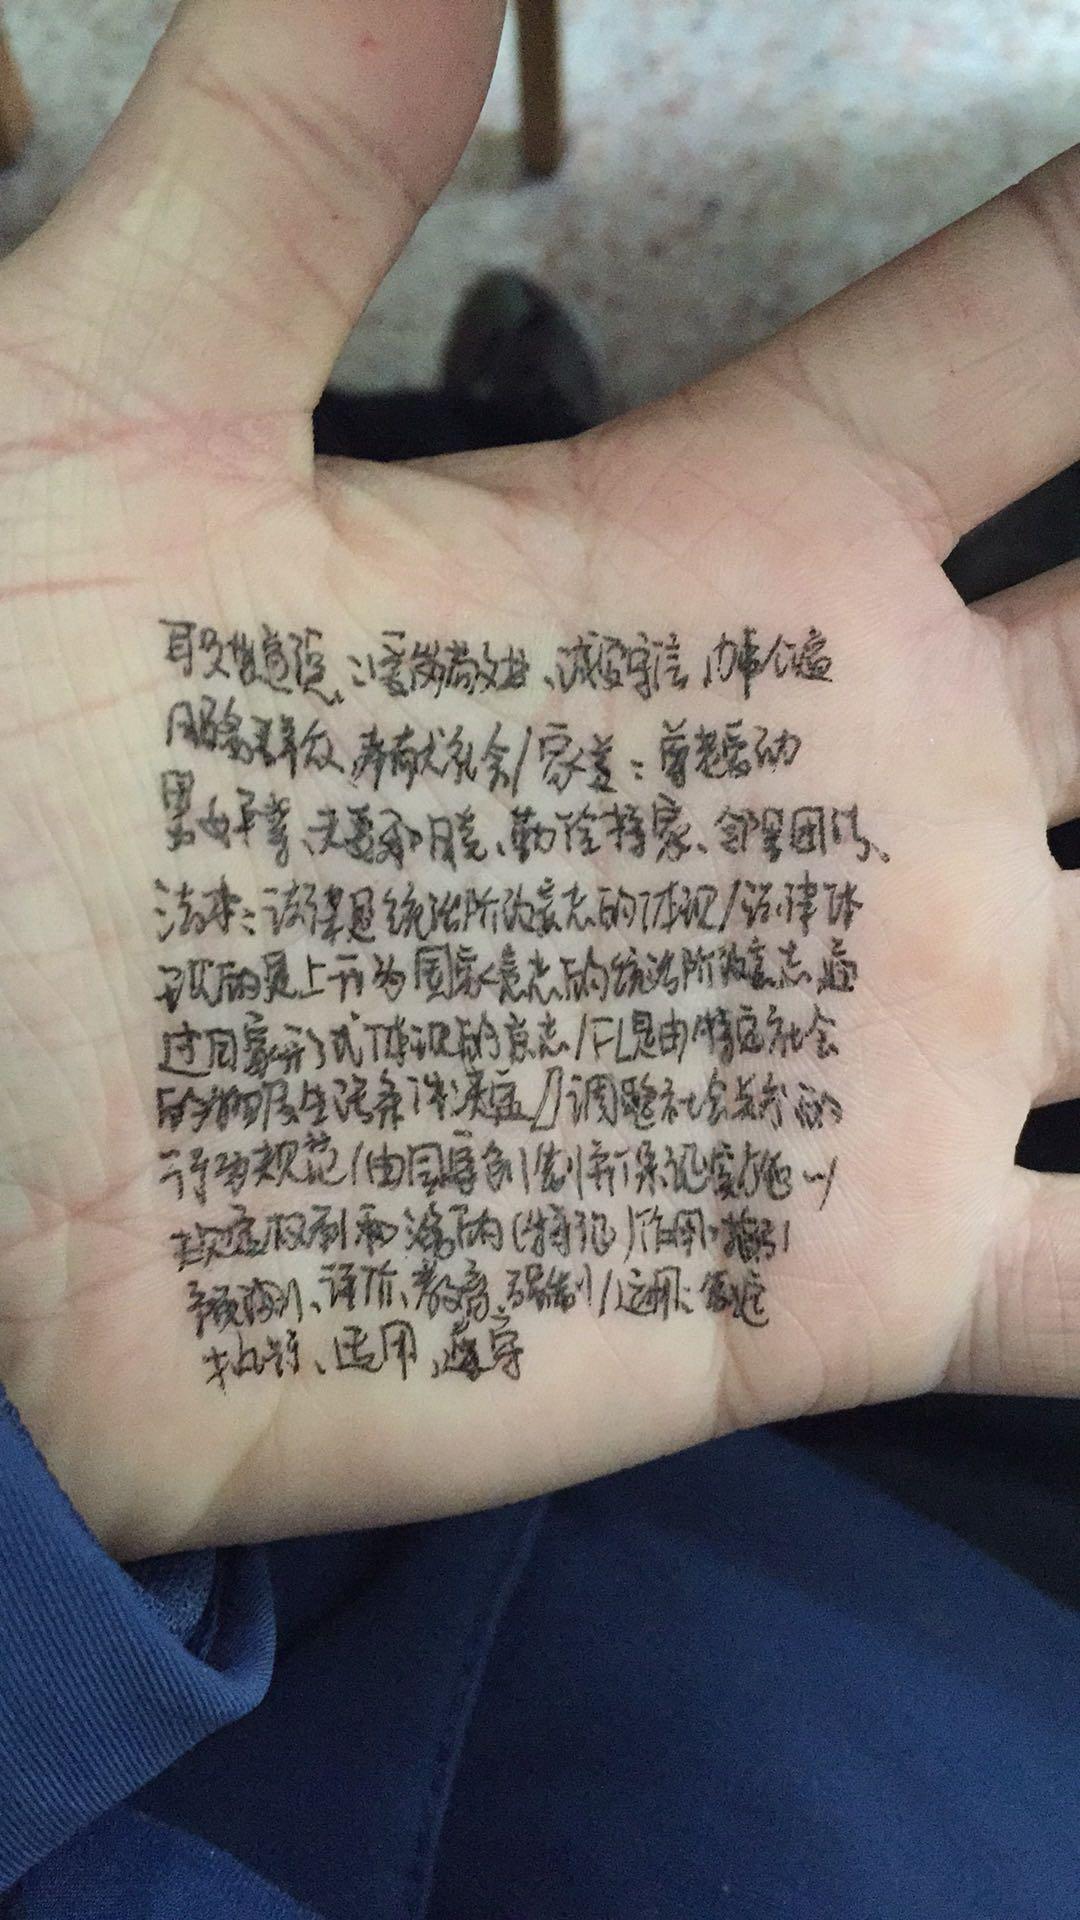 职业道德：爱岗敬业、诚实守信、办事公道
服务群众、奉献社会/家美：尊老爱幼
男女平等、夫妻和睦、勤俭持家、邻里团结、
法本：法律是统治阶级意志的体现/法律体
现的是上升为国家意志的统治阶级意志 通
过国家形式体现的意志/FL是由特定社会
的物质生活条件决定//调整社会关系的
行为规范/由国家创制并保证实施/
规定权利和 (特征)作用:指引
预测、评价、教育、强制/运用:制定
执行、适用、遵守